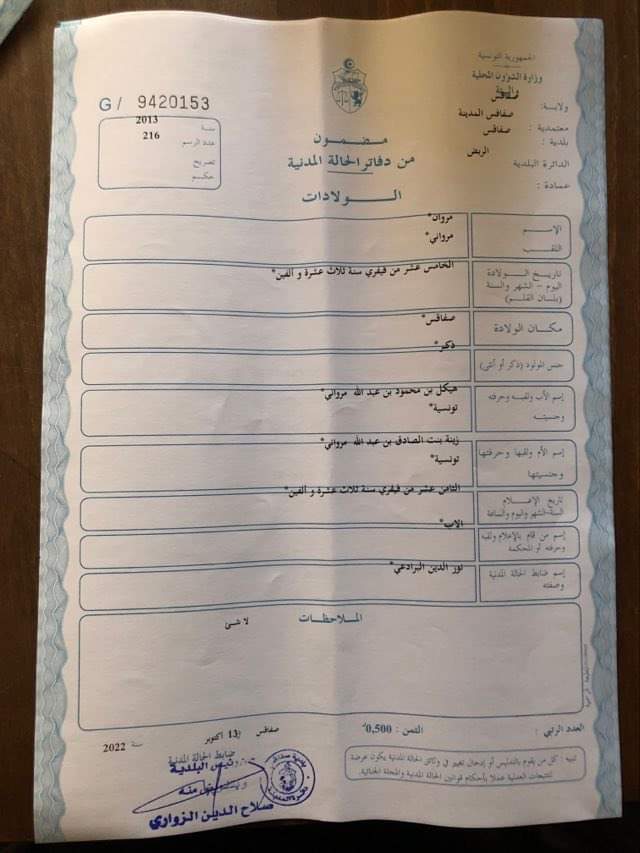 الجمهورية التونسية
وزارة الشؤون المحلية
والبيئة
ولاية: صفاقس
معتمدية : صفاقس المدينة
بلدية : صفاقس
الدائرة البلدية الربض
عمادة :
G/ 9420153
سنة 2013
عدد الرسم 216
تصريح
حكم
مضمون
من دفاتر الحالة المدنية
الولادات
الإسم مروان*
اللقب مرواني*
تاريخ الولادة الخامس عشر من فيفري سنة ثلاث عشرة و ألفين*
اليوم - الشهر والسنة
(بلسان القلم)
مكان الولادة صفاقس*
جنس المولود (ذكر أو أنثى) ذكر*
إسم الأب ولقبه وحرفته هيكل بن محمود بن عبد الله مرواني*
وجنسيته تونسية*
إسم الأم ولقبها وحرفتها زينة بنت الصادق بن عبد الله مرواني*
وجنسيتها تونسية*
تاريخ الإعلام الثامن عشر من فيفري سنة ثلاث عشرة و ألفين*
السنة-الشهر واليوم والساعة
إسم من قام بالإعلام ولقبه الاب*
وحرفته أو المحكمة
إسم ضابط الحالة المدنية نور الدين البرادعي*
وصفته
الملاحظات
لا شئ
العدد الرتبي : الثمن : 0,500د
صفاقس في 13 أكتوبر سنة 2022
ضابط الحالة المدنية
رئيس البلدية
صلاح الدين الزواري
تنبيه : كل من يقوم بالتدليس أو إدخال تغيير في وثائق الحالة المدنية يكون عرضة
للتتبعات العدلية عملا بأحكام قوانين الحالة المدنية والمجلة الجنائية.